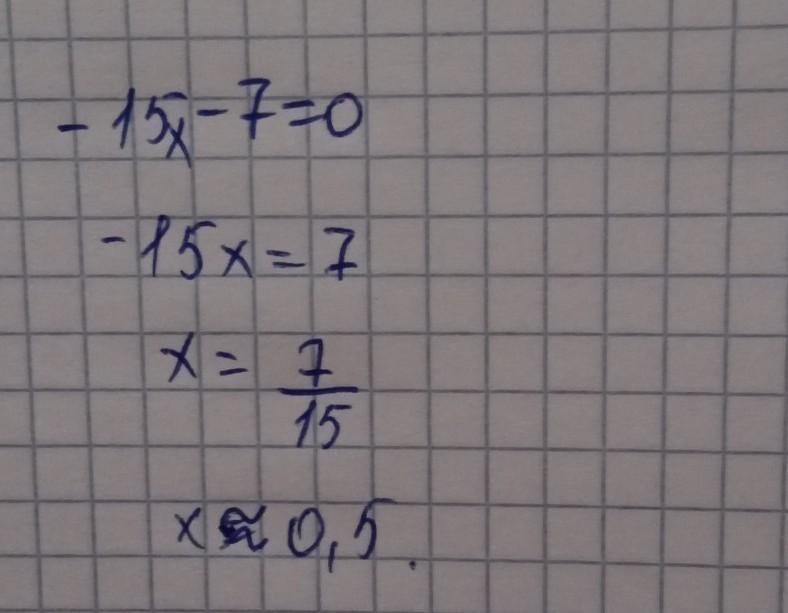 -15x-7=0
-15x=7
x=7/15
x≈0,5.